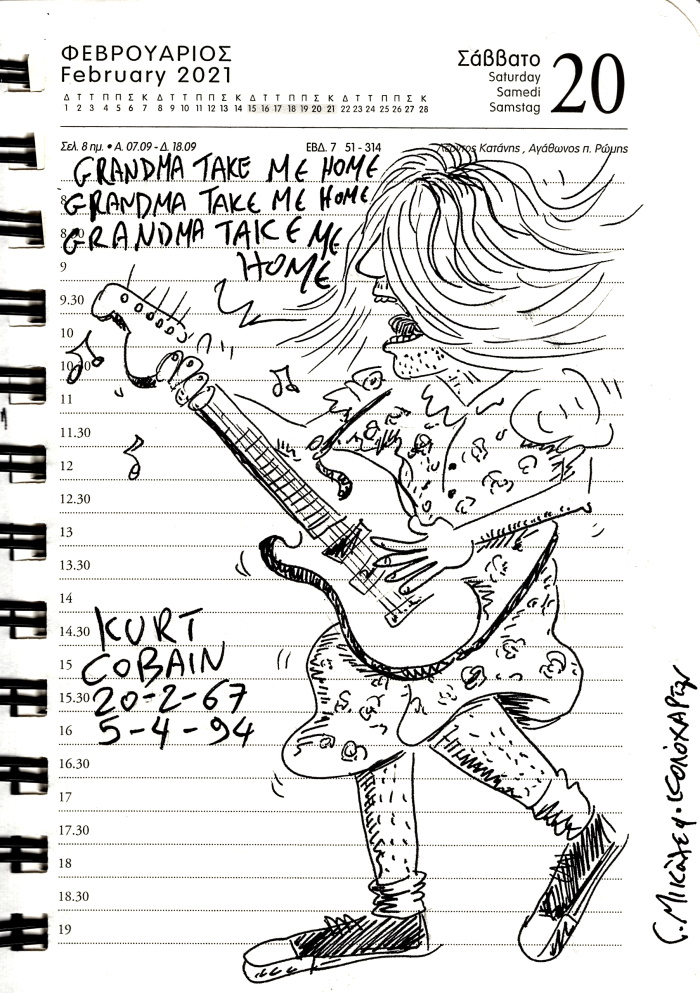 ΦΕΒΡΟΥΑΡΙΟΣ
February 2021
Δ Τ Τ Π Π Σ Κ Δ Τ Τ Π Π Σ Κ Δ Τ Τ Π Π Σ Κ Δ Τ Τ Π Π Σ Κ
1 2 3 4 5 6 7 8 9 10 11 12 13 14 15 16 17 18 19 20 21 22 23 24 25 26 27 28
Σάββατο
Saturday
Samedi
Samstag
20
Σελ. 8 ημ. • Α. 07.09 - Δ. 18.09
ΕΒΔ. 7 51 - 314
Λέοντος Κατάνης , Αγάθωνος π. Ρώμης
GRANDMA TAKE ME HOME
GRANDMA TAKE ME HOME
GRANDMA TAKE ME
HOME
9
9.30
10
10.30
11
11.30
12
12.30
13
13.30
14
14.30
15
15.30
16
16.30
17
17.30
18
18.30
19
KURT
COBAIN
20-2-67
5-4-94